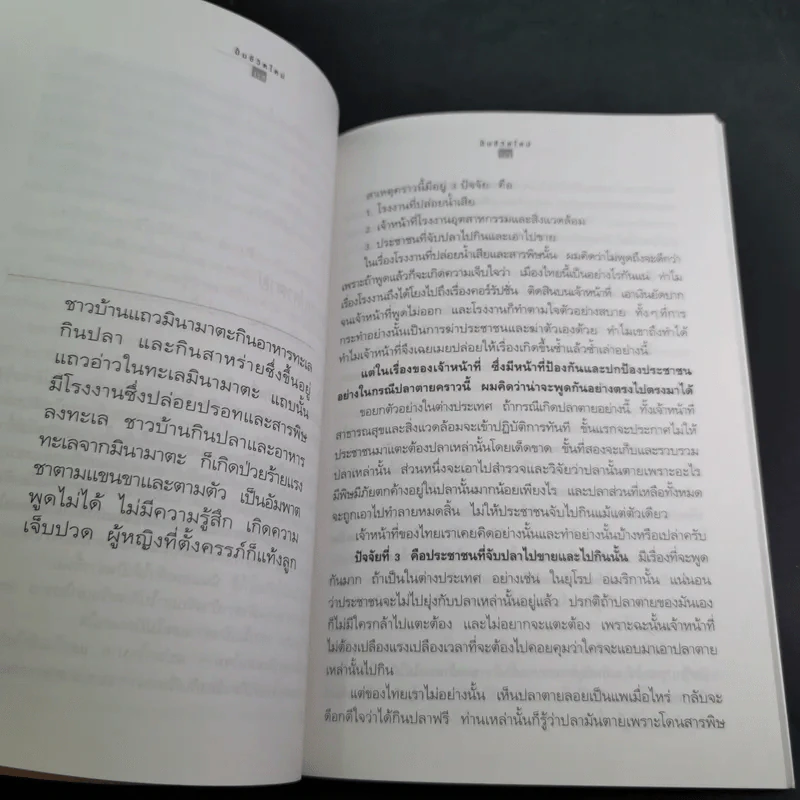 ชีบสีวิตใหม่
ชาวบ้านแถวมินามาตะกินอาหารทะเล
กินปลา และกินสาหร่ายซึ่งขึ้นอยู่
แถวอ่าวในทะเลมินามาตะ แถบนั้น
มีโรงงานซึ่งปล่อยปรอทและสารพิษ
ลงทะเล ชาวบ้านกินปลาและอาหาร
ทะเลจากมินามาตะ ก็เกิดป่วยร้ายแรง
ชาตามแขนขาและตามตัว เป็นอัมพาต
พูดไม่ได้ ไม่มีความรู้สึก เกิดความ
เจ็บปวด ผู้หญิงที่ตั้งครรภ์ก็แท้งลูก
สาเหตุคราวนี้มีอยู่ 3 ปัจจัย คือ
1. โรงงานที่ปล่อยน้ำเสีย
2. เจ้าหน้าที่โรงงานอุตสาหกรรมและสิ่งแวดล้อม
3. ประชาชนที่จับปลาไปกินและเอาไปขาย
ในเรื่องโรงงานที่ปล่อยน้ำเสียและสารพิษนั้น ผมคิดว่าไม่พูดถึงจะดีกว่า
เพราะถ้าพูดแล้วก็จะเกิดความเจ็บใจว่า เมืองไทยนี้เป็นอย่างไรกันแน่ ทำไม
เรื่องโรงงานถึงได้โยงไปถึงเรื่องคอร์รัปชั่น ติดสินบนเจ้าหน้าที่ เอาเงินยัดปาก
จนเจ้าหน้าที่พูดไม่ออก และโรงงานก็ทำตามใจตัวอย่างสบาย ทั้งๆ ที่การ
กระทำอย่างนั้นเป็นการฆ่าประชาชนและฆ่าตัวเองด้วย ทำไมเขาถึงทำได้
ทำไมเจ้าหน้าที่จึงเฉยเมยปล่อยให้เรื่องเกิดขึ้นซ้ำแล้วซ้ำเล่าอย่างนี้
แต่ในเรื่องของเจ้าหน้าที่ ซึ่งมีหน้าที่ป้องกันและปกป้องประชาชน
อย่างในกรณีปลาตายคราวนี้ ผมคิดว่าน่าจะพูดกันอย่างตรงไปตรงมาได้
ขอยกตัวอย่างในต่างประเทศ ถ้ากรณีเกิดปลาตายอย่างนี้ ทั้งเจ้าหน้าที่
สาธารณสุขและสิ่งแวดล้อมจะเข้าปฏิบัติการทันที ขั้นแรกจะประกาศไม่ให้
ประชาชนมาแตะต้องปลาเหล่านั้นโดยเด็ดขาด ขั้นที่สองจะเก็บและรวบรวม
ปลาเหล่านั้น ส่วนหนึ่งจะเอาไปสำรวจและวิจัยว่าปลานั้นตายเพราะอะไร
มีพิษมีภัยตกค้างอยู่ในปลานั้นมากน้อยเพียงไร และปลาส่วนที่เหลือทั้งหมด
จะถูกเอาไปทำลายหมดสิ้น ไม่ให้ประชาชนจับไปกินแม้แต่ตัวเดียว
เจ้าหน้าที่ของไทยเราเคยคิดอย่างนั้นและทำอย่างนั้นบ้างหรือเปล่าครับ
ปัจจัยที่ 3 คือประชาชนที่จับปลาไปขายและไปกินนั้น มีเรื่องที่จะพูด
กันมาก ถ้าเป็นในต่างประเทศ อย่างเช่น ในยุโรป อเมริกานั้น แน่นอน
ว่าประชาชนจะไม่ไปยุ่งกับปลาเหล่านั้นอยู่แล้ว ปรกติถ้าปลาตายของมันเอง
ก็ไม่มีใครกล้าไปแตะต้อง และไม่อยากจะแตะต้อง เพราะฉะนั้นเจ้าหน้าที่
ไม่ต้องเปลืองแรงเปลืองเวลาที่จะต้องไปคอยคุมว่าใครจะแอบมาเอาปลาตาย
เหล่านั้นไปกิน
แต่ของไทยเราไม่อย่างนั้น เห็นปลาตายลอยเป็นแพเมื่อไหร่ กลับจะ
ดีอกดีใจว่าได้กินปลาฟรี ท่านเหล่านั้นก็รู้ว่าปลามันตายเพราะโดนสารพิษ